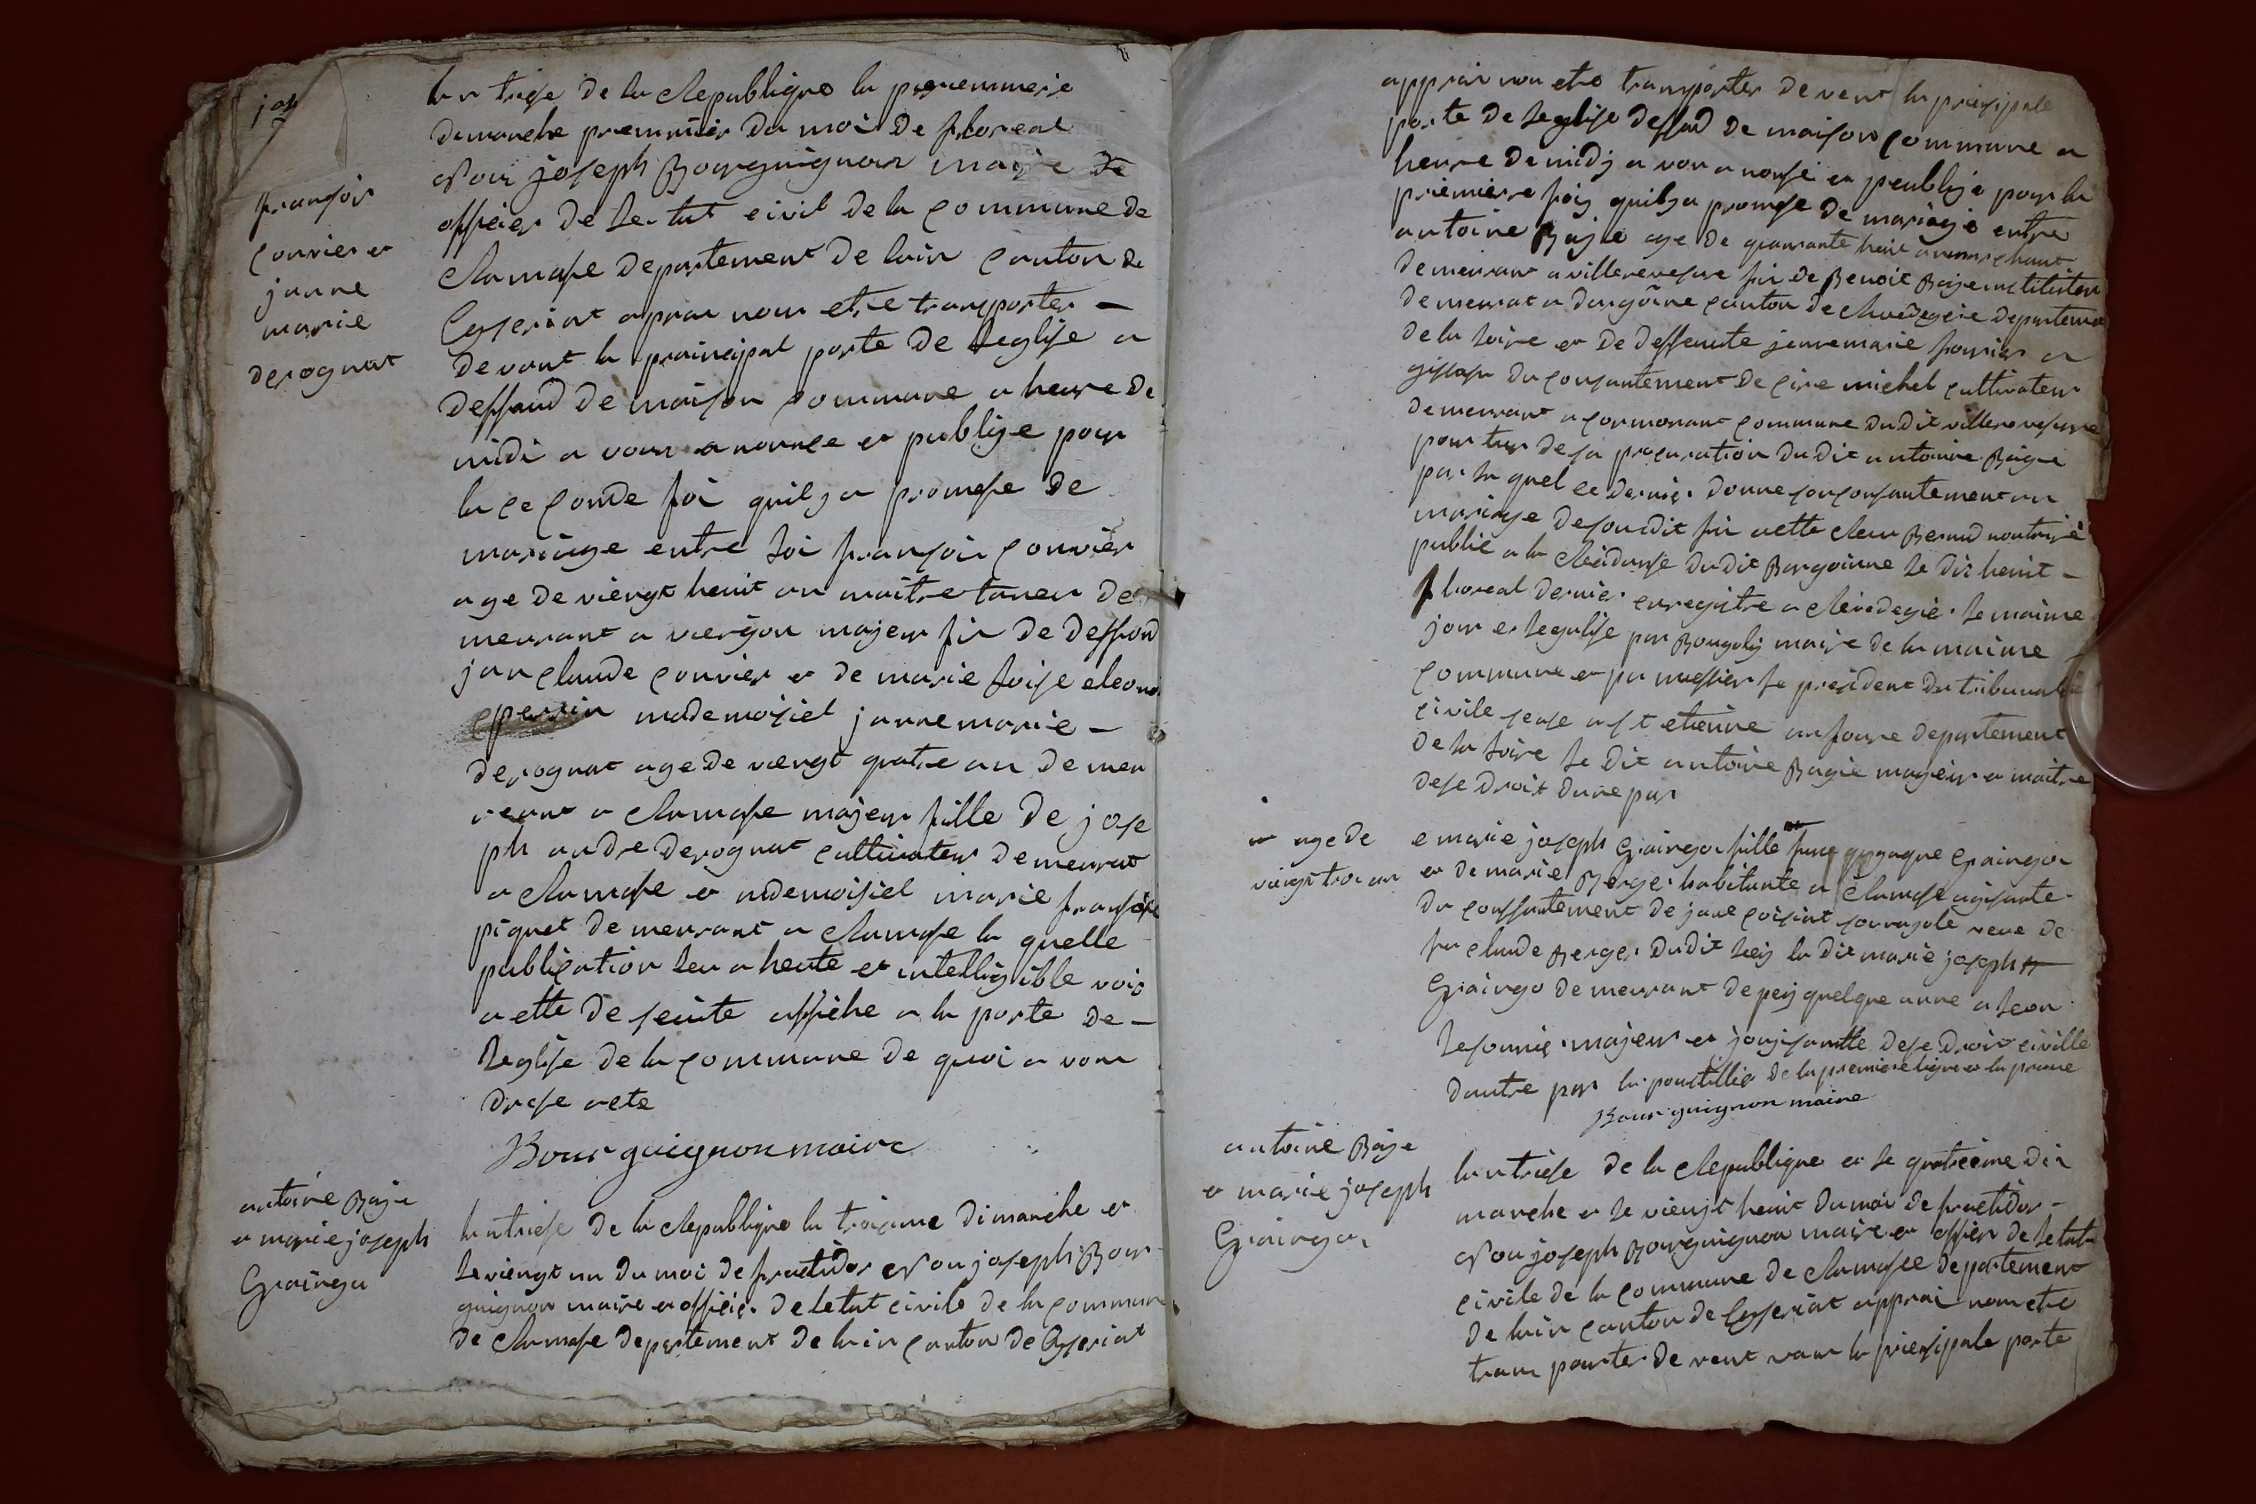 jan
fransois
couvier et
janne
marie
derognat
lan trise de la Republique la premmiere
dimanche premmier du moi de floreal
Nous joseph Bourguignon maire de
officier de Letat civil de la commune de
Ramase departement de lain canton de
Ceyseriat aprai nous etre transporter —
devant la prainsipal porte de Leglise a
deffaud de maison commune a heure de
midi a vons anonnce et publiye pour
la ceconde foi quil y a promese de
mariage entre Loi fransois couvier
age de viengt heuit an maitre taneu de
meurant a viergon majeur fis de deffond
jan claude couvier et de marie Loise eleono
perrin mademoisiel janne marie —
derognat age de viengt quatre an demeu
reant a Ramase majeur fille de jose
ph andre derognat cultivateur demeurat
a Ramase et mdemoisiel marie fransoise
piquet demeurant a Ramase la quelle
publication leu a heute et intelligible voix
a ette de seuite affiche a la porte de —
Leglise de la commune de quoi a vons
drese acte
Bourguignon maire
antoine Baje
et marie joseph
Graingo
lan triese de la Republique la troisime dimanche et
Le viengt un du moi de fructidor Nou joseph Bour
guignon maire et officier de Letat civile de la commun
de Ramase departement de lain canton de Ceyseriat
apprai nou etre transporter devent la prinsipale
porte de Leglise deffaud de maison commune a
heure de midj a von anonsé et peubliye pour la
priemiere foij quil y a promese de mariage entre
antoine Baje age de quarante heuit an marchant
demeurant a villereversure fis de Benoit Baje institeteur
demeurat a dargoine canton de departement
de la Loire et de deffeunte jeanne marie fournier a
gissant du consantement de cire michel cultivateur
demeurant a cormorant commune du dit villereversure
porteur de sa procuration du dit antoine Baije
par la quel ce dernier donne son consantement au
mariage de son dit fis acette Recu Beraud noutaire
public a la Residanse du dit Bargoinne le dix heuit —
floreal dernier enregistre a le maime
jour et legalise par maire de la maime
commune et par messier le president du tribunal
civile sease a st etienne anforee departement
de la Loire Le dit antoine Bagie majeur et maitre
dese droit dune par
et age de
viengt troi an
e marie joseph Graingo fille Graingo
et de marie Berger habitante a Ramase agisante
du consantement de jane son ayole veve de
feu claude Berger du dit lieij la dit marie joseph
Graingo demeurant depeij quelque anne a Leon
Lesounie majeur et jouijsantte dese droit civille
dautre par la poustillie de la premiere ligne a la prouve
Bourguignon maire
antoine Baje
et marie joseph
Graingo
lan triese de la Republique et le quatrieme di
manche et le viengt heuit du moi de fructidor —
Nou joseph Bourguignon maire et offisier de Letat
civile de la commune de Ramase departement
de lain canton de Ceyseriat apprai nou etre
trans pourter devent la prinsipale porte